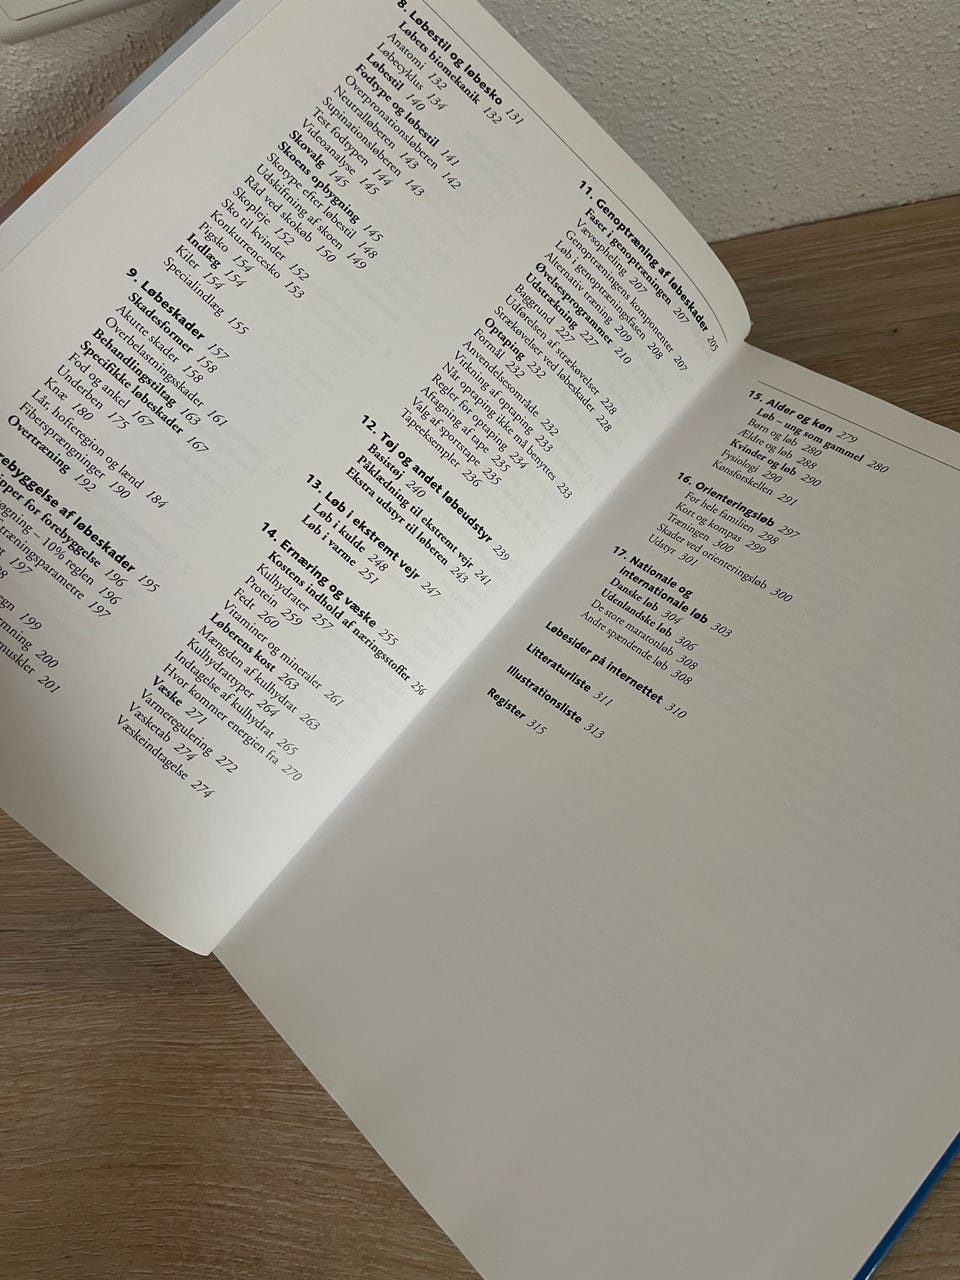 8. Løbestil og løbesko 131
Løbets biomekanik 132
Anatomi 132
Løbecyklus 134
Løbestil 140
Fodtype og løbestil 141
Overpronationsløberen 142
Neutralløberen 143
Supinationsløberen 143
Test fodtypen 144
Videoanalyse 145
Skovalg 145
Skoens opbygning 145
Skotype efter løbestil 148
Udskiftning af skoen 149
Råd ved skokøb 150
Skopleje 152
Sko til kvinder 152
Konkurrencesko 153
Pigsko 154
Indlæg 154
Kiler 154
Specialindlæg 155
9. Løbeskader 157
Skadesformer 158
Akutte skader 158
Overbelastningsskader 161
Behandlingstiltag 163
Specifikke løbeskader 167
Fod og ankel 167
Underben 175
Knæ 180
Lår, hofteregion og lænd 184
Fibersprængninger 190
Overtræning 192
rebyggelse af løbeskader 195
ipper for forebyggelse 196
øgning – 10% reglen 196
træningsparametre 197
197
egn 199
rmning 200
muskler 201
11. Genoptræning af løbeskader 205
Faser i genoptræningen 207
Vævsopheling 207
Genoptræningens komponenter 207
Løb i genoptræningsfasen 208
Alternativ træning 209
Øvelsesprogrammer 210
Udstrækning 227
Baggrund 227
Udførelsen af strækøvelser 228
Strækøvelser ved løbeskader 228
Optaping 232
Formål 232
Anvendelsesområde 232
Virkning af optaping 233
Når optaping ikke må benyttes 233
Regler for optaping 234
Aftagning af tape 235
Valg af sportstape 235
Tapeeksempler 236
12. Tøj og andet løbeudstyr 239
Basistøj 240
Påklædning til ekstremt vejr 241
Ekstra udstyr til løberen 243
13. Løb i ekstremt vejr 247
Løb i kulde 248
Løb i varme 251
14. Ernæring og væske 255
Kostens indhold af næringsstoffer 256
Kulhydrater 257
Protein 259
Fedt 260
Vitaminer og mineraler 261
Løberens kost 263
Mængden af kulhydrat 263
Kulhydrattyper 264
Indtagelse af kulhydrat 265
Hvor kommer energien fra 270
Væske 271
Varmeregulering 272
Væsketab 274
Væskeindtagelse 274
15. Alder og køn 279
Løb – ung som gammel 280
Børn og løb 280
Ældre og løb 288
Kvinder og løb 290
Fysiologi 290
Kønsforskellen 291
16. Orienteringsløb 297
For hele familien 298
Kort og kompas 299
Træningen 300
Skader ved orienteringsløb 300
Udstyr 301
17. Nationale og
internationale løb 303
Danske løb 304
Udenlandske løb 306
De store maratonløb 308
Andre spændende løb 308
Løbesider på internettet 310
Litteraturliste 311
Illustrationsliste 313
Register 315